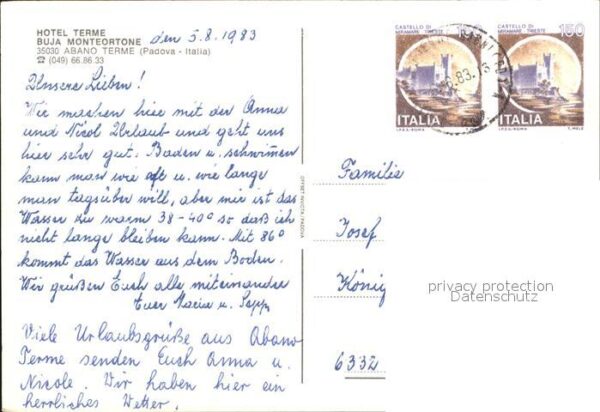 HOTEL TERME
BUJA MONTEORTONE
35030 ABANO TERME (Padova - Italia)
☎ (049) 66.86.33
den 5.8.1983
Unsere Lieben!
Wir machen hier mit der Anna
und Nicol Urlaub und geht uns
hier sehr gut. Baden u. schwimen
kann man wie oft u. wie lange
man tagsüber will, aber mir ist das
Wasser zu warm 38-40° so daß ich
nicht lange bleiben kann. Mit 86°
kommt das Wasser aus dem Boden.
Wir grüßen Euch alle miteinander
Euer Maria u. Sepp
Viele Urlaubsgrüße aus Abano
Terme senden Euch Anna u.
Nicole. Wir haben hier ein
herrliches Wetter.
OFFSET INVICTA/PADOVA
CASTELLO DI
MIRAMARE TRIESTE
ITALIA
I.P.Z.S. ROMA
CASTELLO DI
MIRAMARE TRIESTE
150
ITALIA
I.P.Z.S. ROMA
T. MELE
Familie
Josef
König
6332
privacy protection
Datenschutz